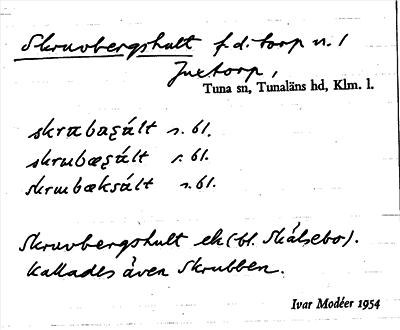 Skruvbergshult f.d. torp n. 1
Juxtorp,
Tuna sn, Tunaläns hd, Klm. l.
skrɯbaʂált s. 61.
skrɯbæʂált s. 61.
skrɯbæksált s. 61.
Skruvbergshult ek (bl. Skálsebo).
Kallades även Skrubben.
Ivar Modéer 1954